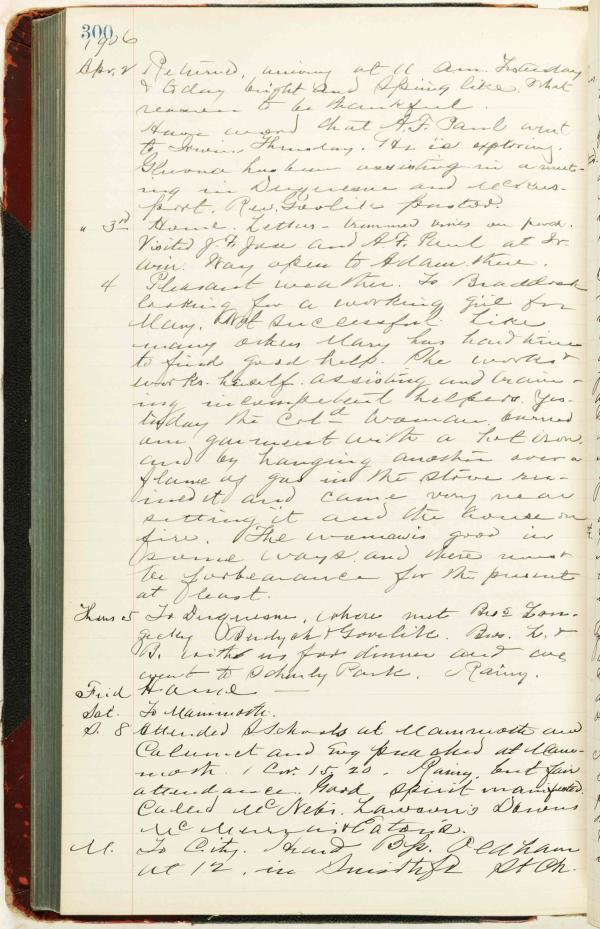 300
1906
Apr. 2 Returned, arriving at 11 am. Yesterday
& today bright and Spring like. What
reason to be thankful.
Have word that A.F. Paul went
to Irwin Thursday. He is exploring.
has been assisting in a meet-
ing in Duquesne and McKees-
port. Rev. Gavlik pastor.
" 3rd Home. Letters - trimmed vines on porch.
Visited J.F. Jose and A.F. Paul at Ir-
win. Way open to Adam there.
4 Pleasant weather. To Braddock
looking for a working girl for
Mary. Not successful. Like
many others Mary has hard time
to find good help. She works &
works herself assisting and train-
ing incompetent helpers. Yes-
terday the Cold woman burned
one garment with a hot iron
and by hanging another over a
flame of gas in the stove ru-
ined it and came very near
setting it and the house on
fire. The woman is good in
some ways and there must
be forbearance for the present
at least.
Thurs 5 To Duquesne, where met Bros
& Gavlik. Bros. L. &
B. with us for dinner and we
went to Schenly Park. Rainy.
Frid Home —
Sat. To Mammoth.
S. 8 Attended SSchools at Mammoth and
Calumet and Eng preached at Mam-
moth. 1 Cor. 15, 20. Rainy, but fair
attendance. Good spirit manifested.
Called Lawson's
& Eaton's.
M. To City. Heard Bp. Oldham
at 12, in Smithf St Ch.